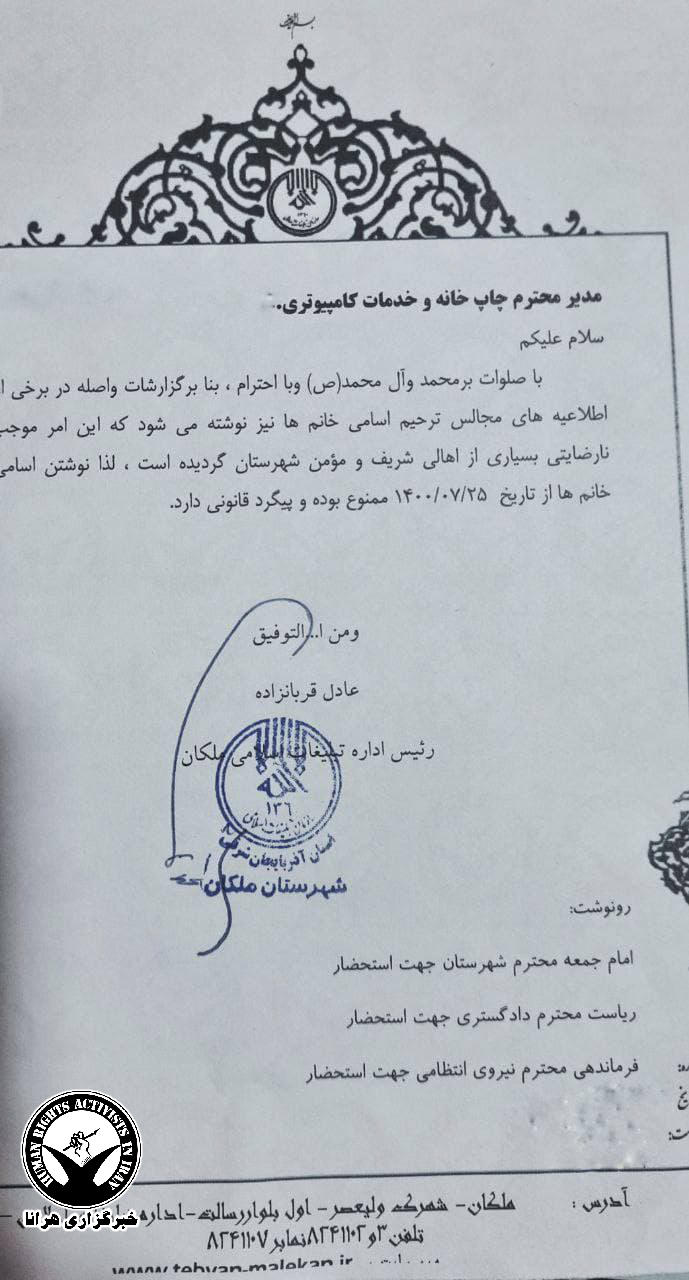 مدیر محترم چاپ خانه و خدمات کامپیوتری.
سلام علیکم
با صلوات برمحمد وآل محمد(ص) وبا احترام ، بنا برگزارشات واصله در برخی
اطلاعیه های مجالس ترحیم اسامی خانم ها نیز نوشته می شود که این امر موجب
نارضایتی بسیاری از اهالی شریف و مؤمن شهرستان گردیده است ، لذا نوشتن اسامی
خانم ها از تاریخ ۱۴۰۰/۰۷/۲۵ ممنوع بوده و پیگرد قانونی دارد.
ومن ا...التوفیق
عادل قربانزاده
رئیس اداره تبلیغات اسلامی ملکان
۱۳۶
استان آذربایجان شرقی
شهرستان ملکان
رونوشت:
امام جمعه محترم شهرستان جهت استحضار
ریاست محترم دادگستری جهت استحضار
فرماندهی محترم نیروی انتظامی جهت استحضار
آدرس : ملکان- شهرک ولیعصر - اول بلواررسالت-اداره
تلفن ۳و۸۲۴۱۱۰۲نمابر۸۲۴۱۱۰۷
www.tebyan-malekan.ir
HUMAN RIGHTS ACTIVISTS IN IRAN
خبرگزاری هرانا